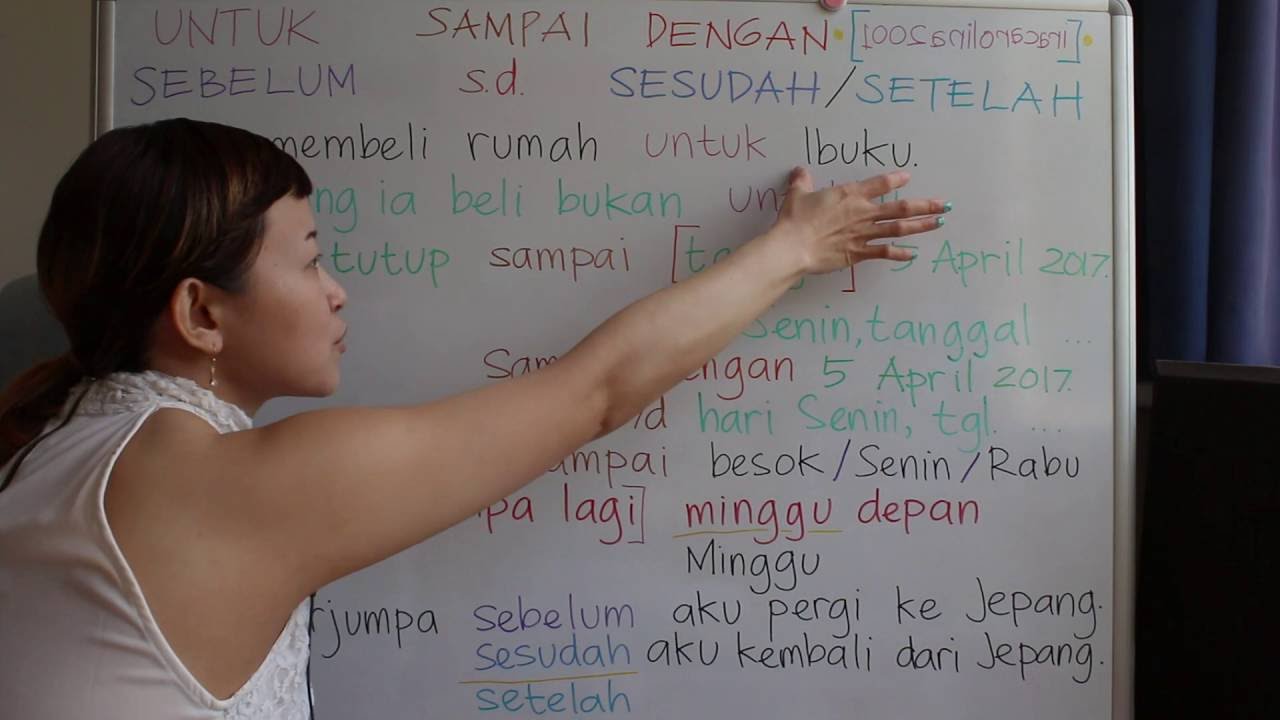 UNTUK SAMPAI DENGAN
SEBELUM s.d. SESUDAH/SETELAH
membeli rumah untuk Ibuku.
ia beli bukan
tutup sampai [ ] 5 April 2017.
Senin, tanggal ...
5 April 2017.
hari Senin, tgl. ...
besok/Senin/Rabu
lagi] minggu depan
Minggu
sebelum aku pergi ke Jepang.
sesudah aku kembali dari Jepang.
setelah